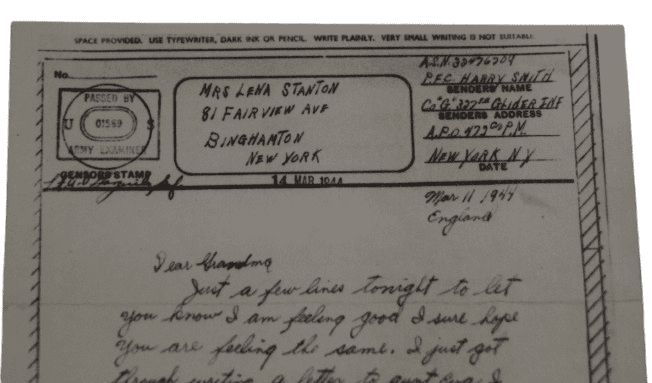 SPACE PROVIDED. USE TYPEWRITER, DARK INK OR PENCIL. WRITE PLAINLY. VERY SMALL WRITING IS NOT SUITABLE.
No.
PASSED BY
U 01569 S
ARMY EXAMINER
CENSORS STAMP
MRS LENA STANTON
81 FAIRVIEW AVE
BINGHAMTON
NEW YORK
14 MAR 1944
A.S.N. 32476709
P.F.C. HARRY SMITH
SENDERS NAME
Co "G" 327th GLIDER INF
SENDERS ADDRESS
A.P.O 472 P.M.
NEW YORK N Y
DATE
Mar 11 1944
England
Dear Grandma
Just a few lines tonight to let
you know I am feeling good I sure hope
you are feeling the same. I just got
through writing a letter to aunt I